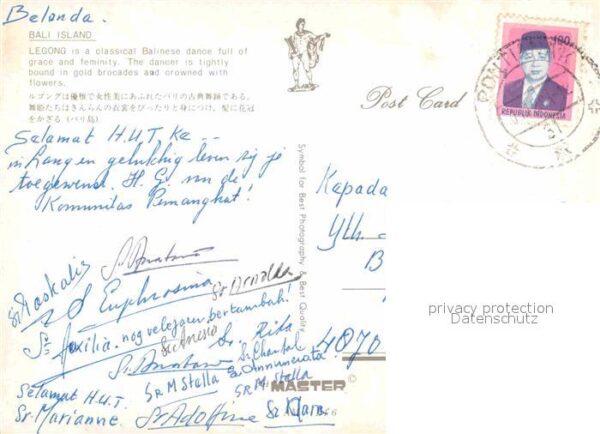 Belanda.
BALI ISLAND.
LEGONG is a classical Balinese dance full of
grace and feminity. The dancer is tightly
bound in gold brocades and crowned with
flowers.
ルゴングは優雅で女性美にあふれたバリの古典舞踊である。
舞姫たちはきんらんの衣裳をぴったりと身につけ、髪に花冠
をかざる (バリ島)
Post Card
100
REPUBLIK INDONESIA
Selamat H.U.T. Ke --
'n Lang en gelukkig leven zij je
toegewenst. H.G. van de
Komunitas Pemangkat!
Symbol for Best Photography & Best Quality
Kepada
Yth.
B
4070
Sr. Paskalis
Sr Euphrosina
Sr Arnolda
Sr. Auxilia. nog vele jaren bertambah!
Sr. Rita
Sr Chantal
Sr Annunciata
SR M Stella
SR. M. Stella
Selamat H.U.T.
Sr. Marianne.
Sr Adolfine
Sr Klara
MASTER
privacy protection
Datenschutz